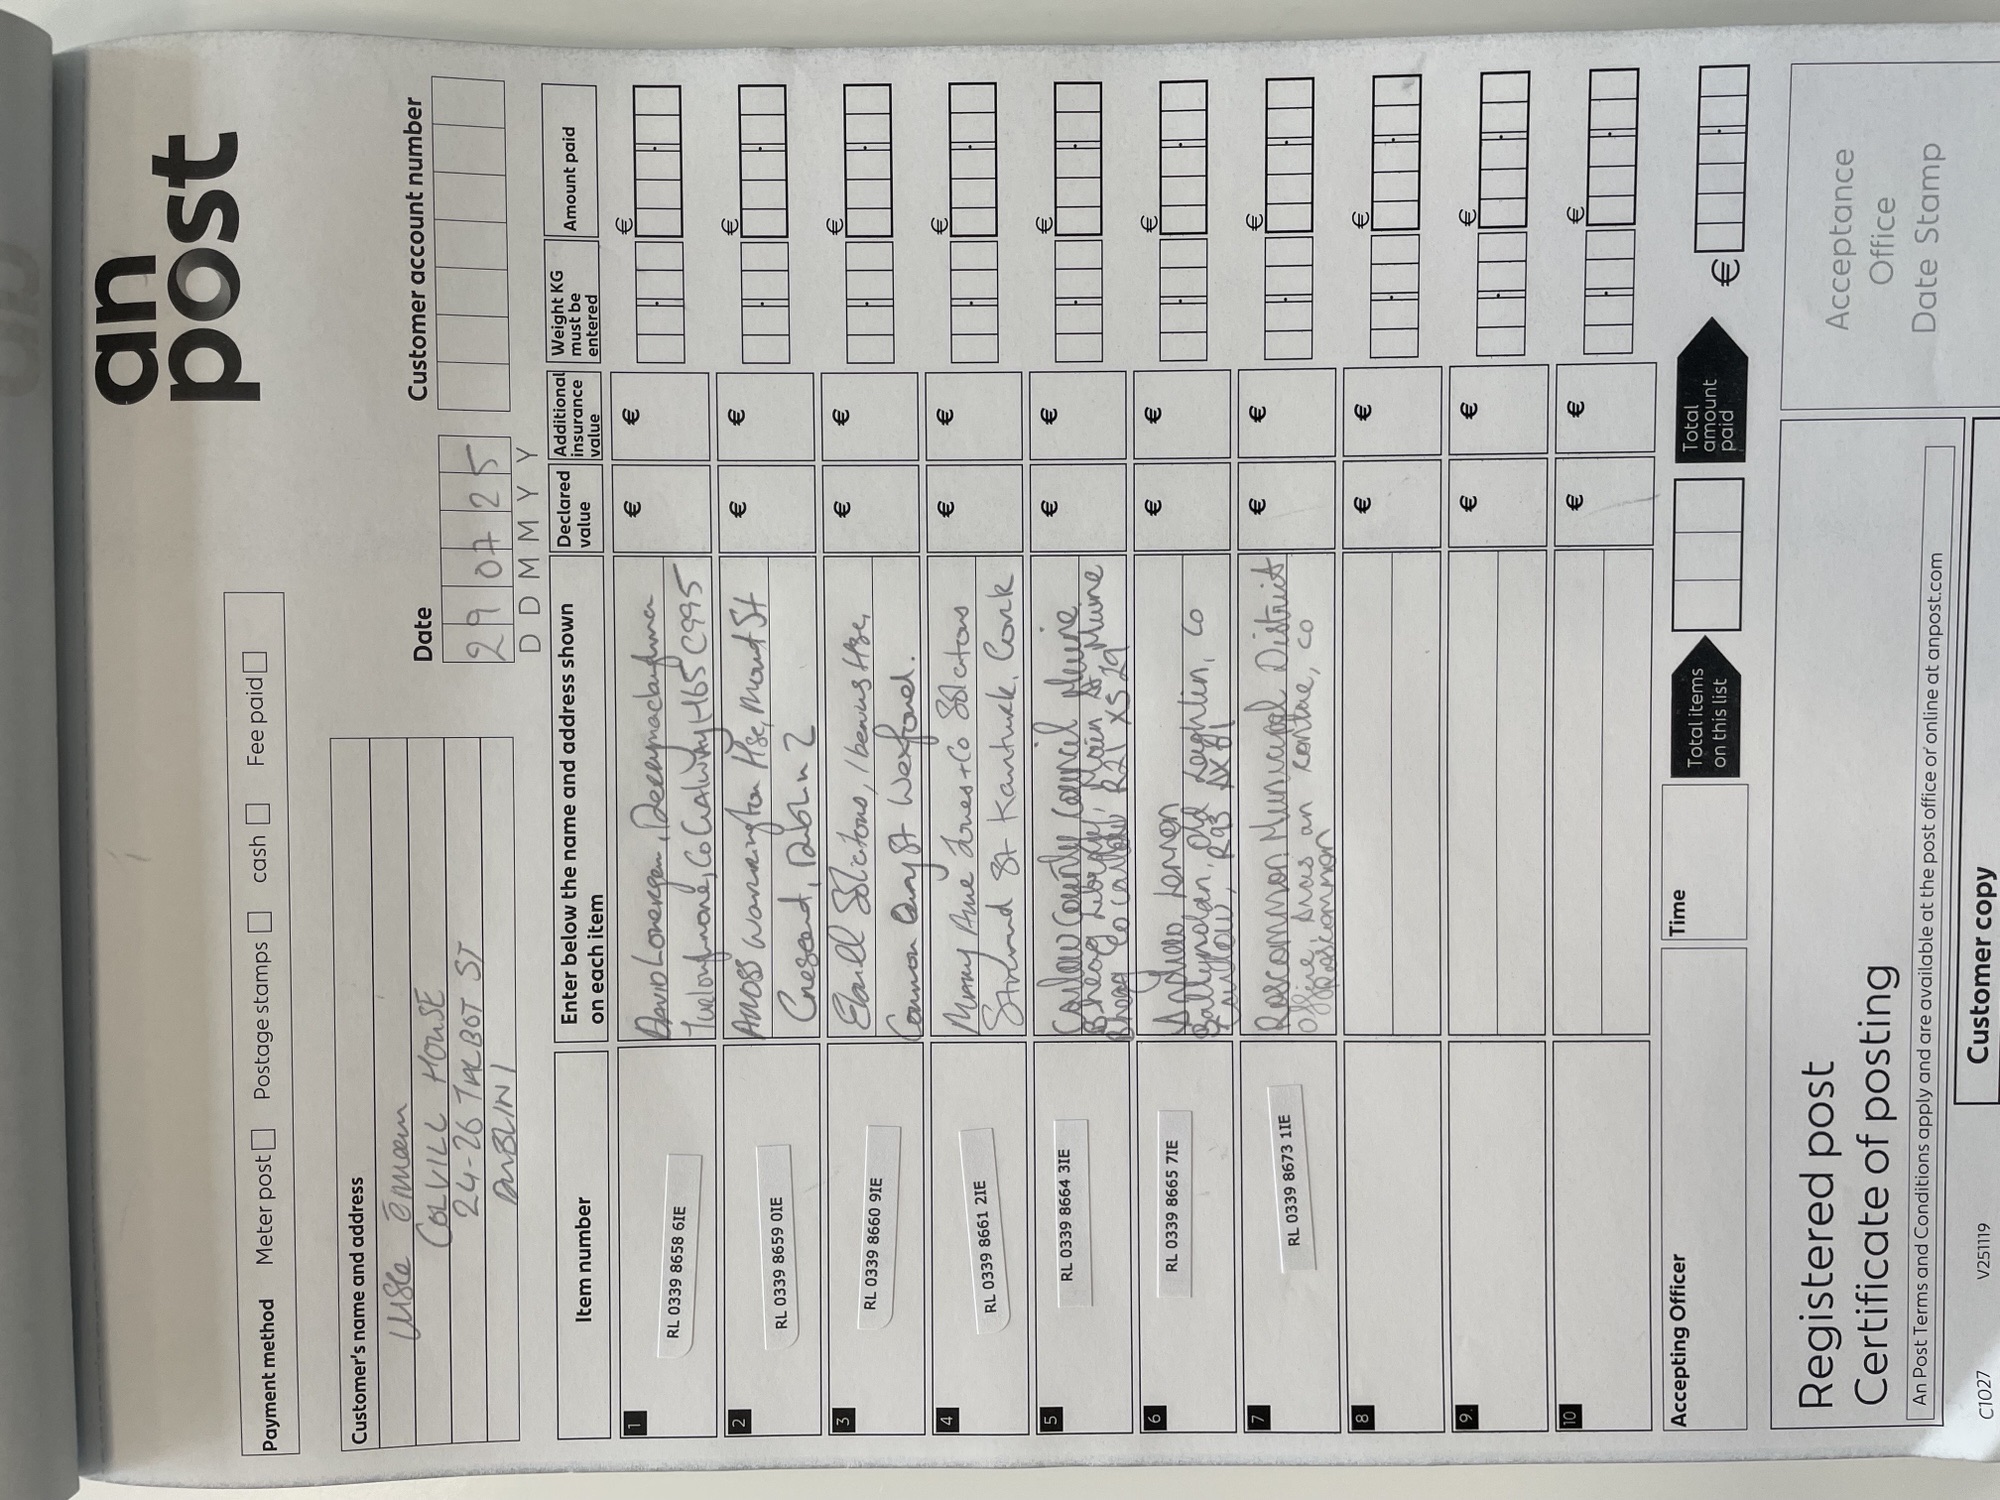 an
post
Payment method Meter post Postage stamps cash Fee paid
Customer's name and address
COLVILL HOUSE
24-26 TALBOT ST
DUBLIN 1
Date
29 07 25
D D M M Y Y
Customer account number
Item number
Enter below the name and address shown
on each item
Declared
value
Additional
insurance
value
Weight KG
must be
entered
Amount paid
1 RL 0339 8658 6IE € € €
David Lonergan, Derrymaclaughna
Turloughmore, Co Galway H65 C995
2 RL 0339 8659 0IE € € €
AMOSS Warrington Hse, Mount St
Crescent, Dublin 2
3 RL 0339 8660 9IE € € €
Solicitors, Iberius Hse,
Common Quay St Wexford.
4 RL 0339 8661 2IE € € €
Mary Anne Jones + Co Solicitors
Strand St Kanturk. Cork
5 RL 0339 8664 3IE € € €
Carlow County Council Muine
Bheag Library, Main St Muine
Bheag Co Carlow R21 X529
6 RL 0339 8665 7IE € € €
Andrew Lennon
Old Leighlin, Co
Carlow, R93
7 RL 0339 8673 1IE € € €
Roscommon Municipal District
Office, Aras an Contae, Co
Roscommon
8 € € €
9 € € €
10 € € €
Accepting Officer
Time
Total items
on this list
Total
amount
paid
€
Registered post
Certificate of posting
An Post Terms and Conditions apply and are available at the post office or online at anpost.com
Acceptance
Office
Date Stamp
C1027 V251119
Customer copy